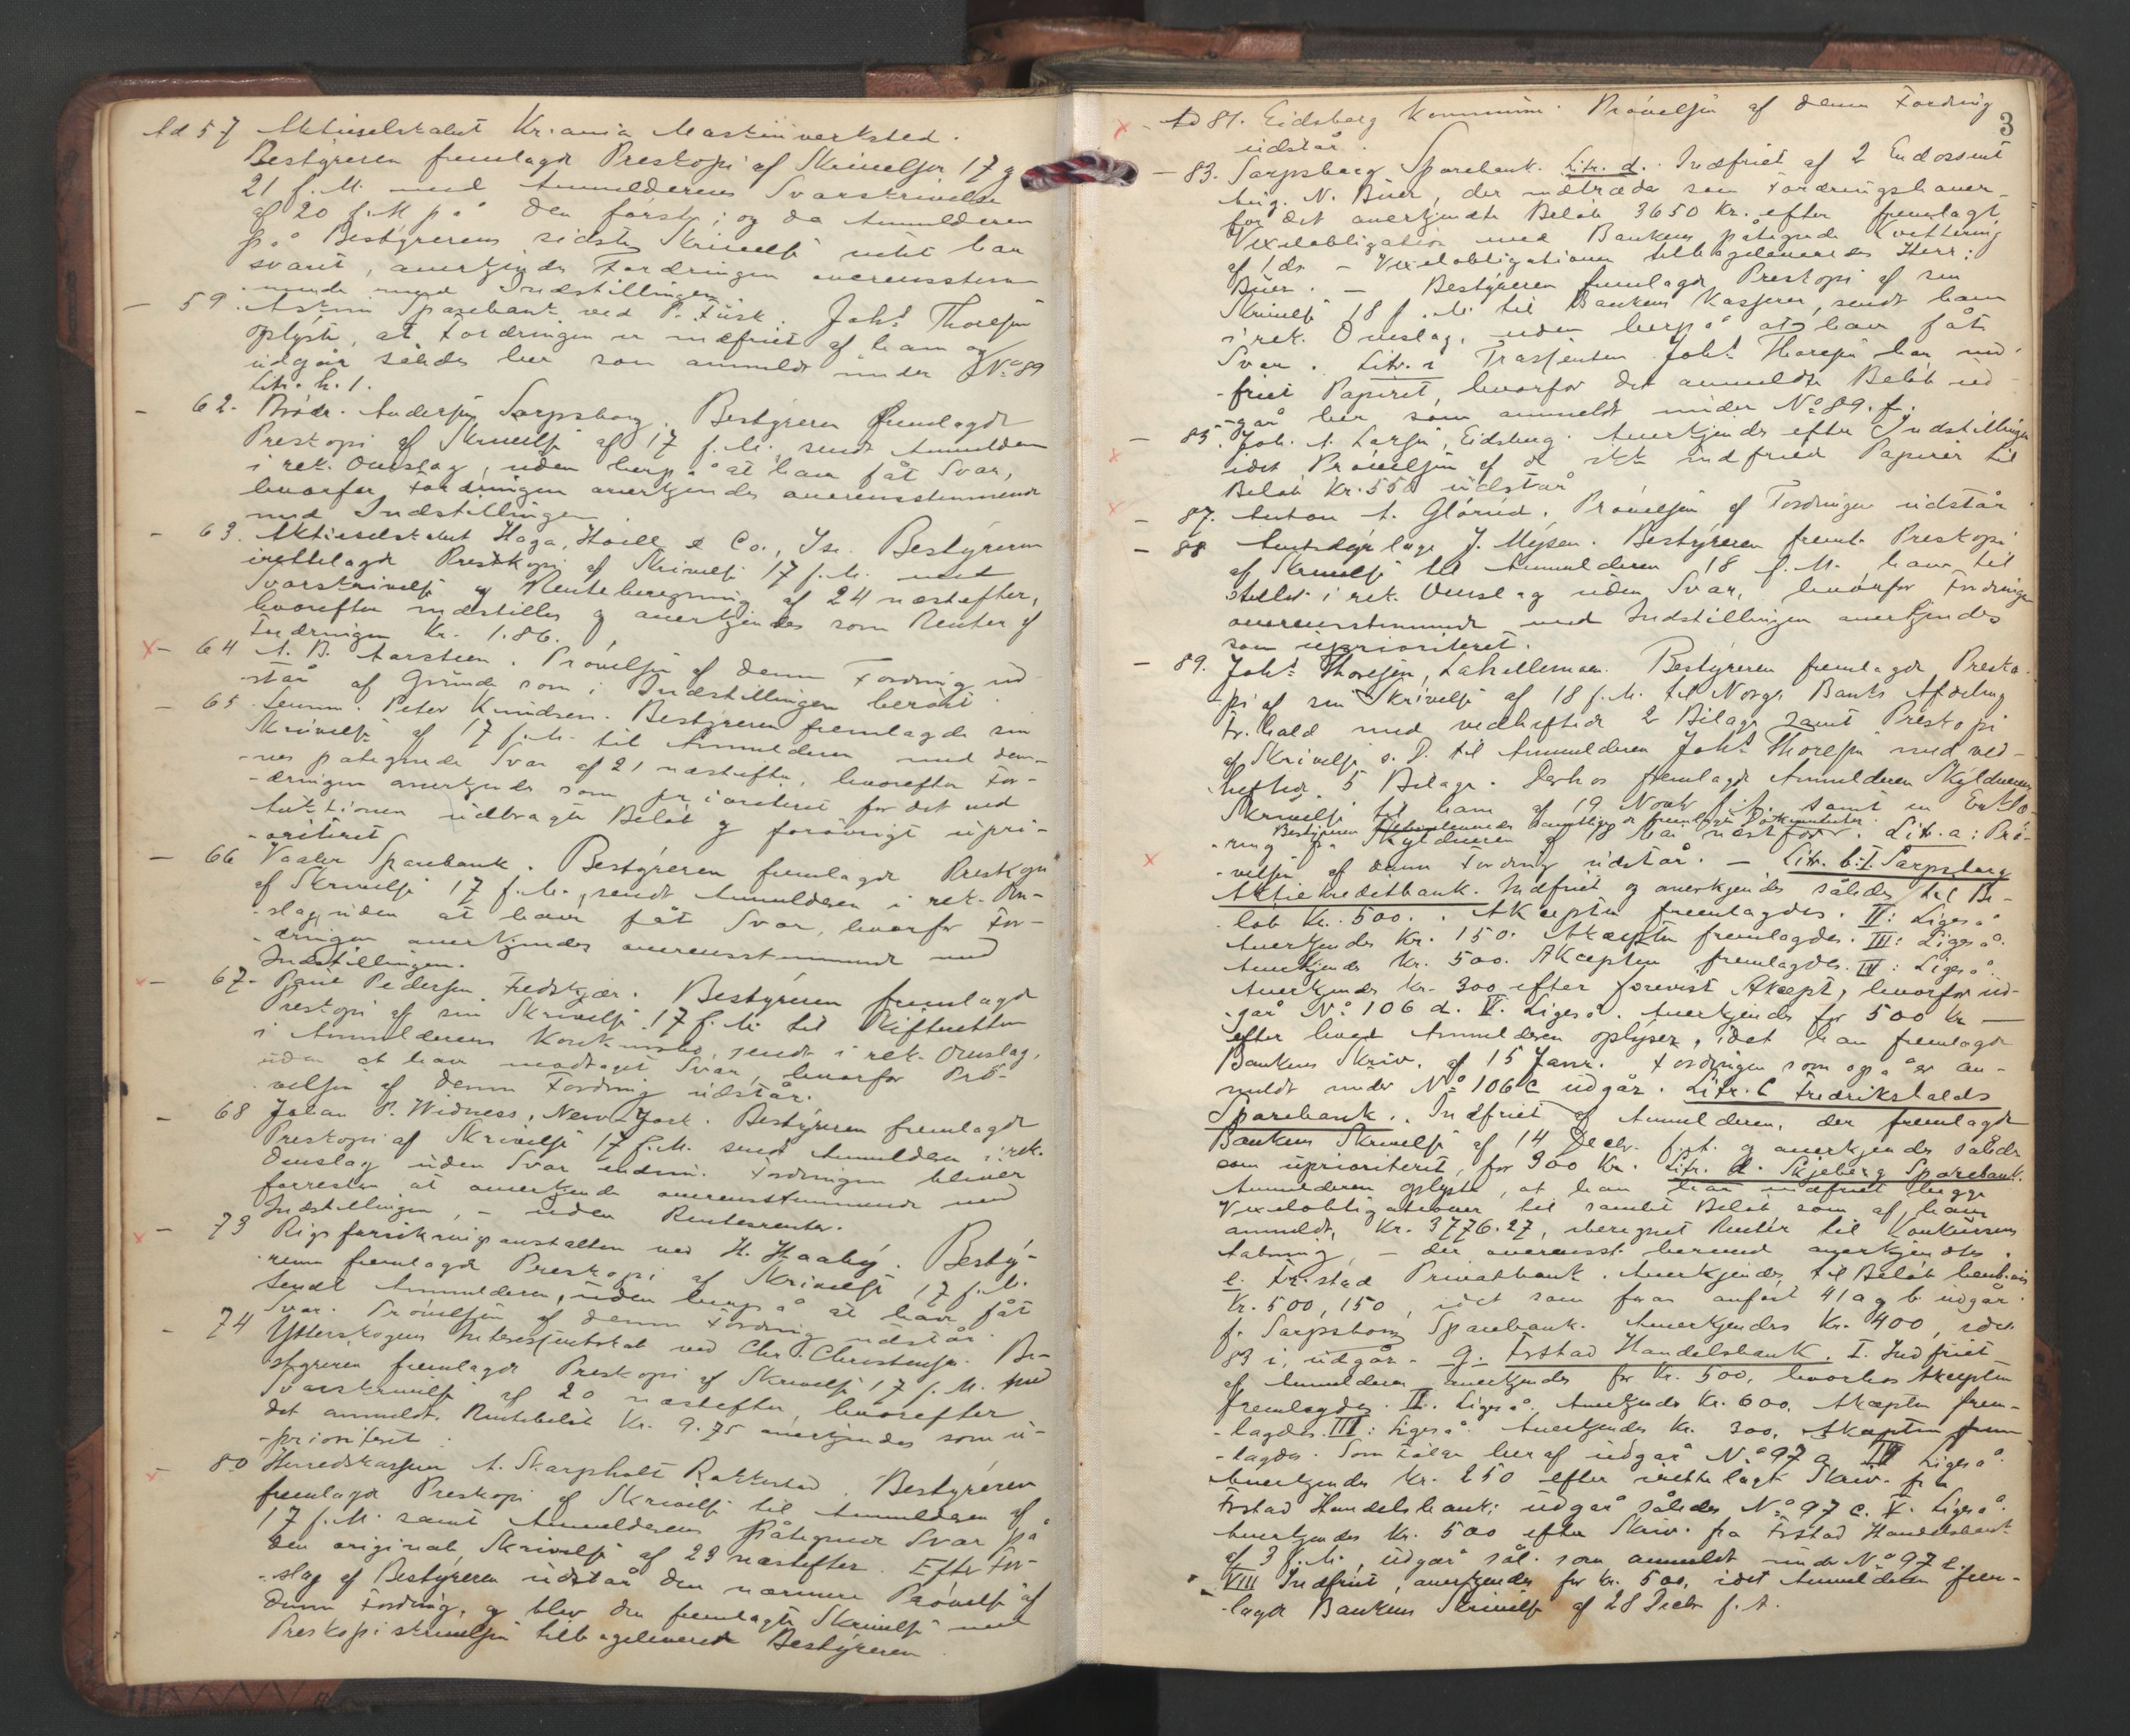 Ad 57 Aktieselskabet Kr.ania Maskinverksted.
Bestyreren fremlagde Preskopi af Skrivelser 17 og
21 f.M. med Anmelderens Svarskrivelse
af 20 f.M. på den første; og da Anmelderen
på Bestyrerens sidste Skrivelse intet har
svaret, anerkjendes Fordringen overensstem-
mende med Indstillingen.
- 59. Askim Sparebank ved P. Fusk. Johs Thoresen
oplyste, at Fordringen er indfriet af ham og
udgår således her som anmeldt under No 89
Litr. h. 1.
- 62. Brødr. Andersen, Sarpsborg. Bestyreren fremlagde
Preskopi af Skrivelse af 17 f.M., sendt Anmelderen
i rek. Omslag, uden herpå at have fåt Svar,
hvorfor Fordringen anerkjendes overensstemmende
med Indstillingen.
- 63. Aktieselskabet Haga, Hoell & Co., Ise. Bestyreren
irettelagde Preskopi af Skrivelse 17 f.M. med
Svarskrivelse og Renteberegning af 24 næstefter,
hvorefter indstilles og anerkjendes som Renter af
Fordringen Kr. 1.86.
x - 64 A. B. Aarsteen. Prøvelsen af denne Fordring ud-
står af Grunde som i Indstillingen berørt.
- 65. Lensm. Peter Knudsen. Bestyreren fremlagde sin
Skrivelse af 17 f.M. til Anmelderen med den-
nes påtegnede Svar af 21 næstefter, hvorefter For-
dringen anerkjendes som prioriteret for det ved
Auktionen udbragte Beløb og forøvrigt upri-
oriteret
- 66 Vaaler Sparebank. Bestyreren fremlagde Preskopi
af Skrivelse 17 f.M., sendt Anmelderen i rek. Om-
slag, uden at have fåt Svar, hvorfor For-
dringen anerkjendes overensstemmende med
Indstillingen.
x - 67. Pedersen Fredskjær. Bestyreren fremlagde
Preskopi af sin Skrivelse 17 f.M. til Skifteretten
i Anmelderens Konkursbo, sendt i rek. Omslag,
uden at have modtaget Svar, hvorfor Prø-
velsen af denne Fordring udstår.
- 68 Johan P. Widness, New-York. Bestyreren fremlagde
Preskopi af Skrivelse 17 f.M. sendt Anmelderen i rek.
Omslag uden Svar endnu. Fordringen bliver
forresten at anerkjende overensstemmende med
Indstillingen, - uden Rentesrenter.
x - 73 Rigsforsikringsanstalten ved H. Haaby. Besty-
reren fremlagde Preskopi af Skrivelse 17 f.M.
sendt Anmelderen, uden herpå at have fåt
Svar. Prøvelsen af denne Fordring udstår.
- 74 Ytterskogens Interessentskab ved Chr. Christensen. Be-
styreren fremlagde Preskopi af Skrivelse 17 f.M. med
Svarskrivelse af 20 næstefter, hvorefter
det anmeldte Rentebeløb Kr. 9.75 anerkjendes som u-
prioriteret.
x - 80 Herredskasserer A. Skarpholt Rakkestad. Bestyreren
fremlagde Preskopi af Skrivelse til Anmelderen af
17 f.M. samt Anmelderens påtegnede Svar på
den originale Skrivelse af 23 næstefter. Efter For-
slag af Bestyreren udstår den nærmere Prøvelse af
denne Fordring, og blev den fremlagte Skrivelse med
Preskopiskrivelsen tilbageleveret Bestyreren.
3
x - Ad 81. Eidsberg Kommune. Prøvelsen af denne Fordring
udstår.
- 83. Sarpsborg Sparebank. Litr. d. Indfriet af 2 Endossent
Aug. N. Buer, der indtræder som Fordringshaver
for det anerkjendte Beløb 3650 Kr. efter fremlagt
Vexelobligation med Bankens påtegnede Kvittering
af 1 ds. - Vexelobligationen tilbageleveredes Herr
Buer. - Bestyreren fremlagde Preskopi af sin
Skrivelse 18 f.M. til Bankens Kasserer, sendt ham
i rek. Omslag, uden herpå at have fåt
Svar. Litr. i Trassenten Johs Thoresen har ind-
friet Papiret, hvorfor det anmeldte Beløb ud-
går her som anmeldt under No 89. f.
- 85. Joh. A. Larsen, Eidsberg. Anerkjendes efter Indstillingen
x idet Prøvelsen af de ikke indfriede Papirer til
Beløb Kr. 550 udstår
x - 87. Anton A. Glorud. Prøvelsen af Fordringen udstår.
- 88 Amtsdyrlæge J. Mysen. Bestyreren fremla. Preskopi
af Skrivelse til Anmelderen 18 f.M. ham til-
stillet i rek. Omslag uden Svar, hvorfor Fordringen
overensstemmende med Indstillingen anerkjendes
som uprioriteret.
- 89. Johs Thoresen, Lahellemoen. Bestyreren fremlagde Presko-
pi af sin Skrivelse af 18 f.M. til Norges Banks Afdeling
Fr.hald med vedheftede 2 Bilage samt Preskopi
af Skrivelse s. D. til Anmelderen Johs Thoresen med ved-
heftede 5 Bilage. Derhos fremlagde Anmelderen Skyldnerens
Skrivelse til ham af 19 Novbr f.A. samt en Erklæ-
Bestyreren fremlagde Dokumenter.
ring fra Skyldneren af 18 Mai næstfør. Litr. a: Prø-
x velsen af denne Fordring udstår. - Litr. b. I. Sarpsborg
Aktiekreditbank. Indfriet og anerkjendes således til Be-
løb Kr. 500. Akcepten fremlagdes. II: Ligeså
Anerkjendes Kr. 150. Akcepten fremlagdes. III: Ligeså.
Anerkjendes Kr. 500. Akcepten fremlagdes. IV: Ligeså.
Anerkjendes Kr. 300 efter forevist Akcept, hvorfor ud-
går No 106 d. V. Ligeså. Anerkjendes for 500 Kr -
efter hvad Anmelderen oplyser, idet han fremlagde
Bankens Skriv. af 15 Janr. Fordringen som også er an-
meldt under No 106 c udgår. Litr. C Fredrikshalds
Sparebank. Indfriet af Anmelderen, der fremlagde
Bankens Skrivelse af 14 Decbr. f.A. og anerkjendes således
som uprioriteret, for 300 Kr. Litr. d. Skjeberg Sparebank.
Anmelderen oplyste, at han har indfriet begge
Vexelobligationer til samlet Beløb som af ham
anmeldt, Kr. 3776.27, iberegnet Renter til Konkursens
Åbning, - der overensst. hermed anerkjendtes.
e. Fr.stad Privatbank. Anerkjendes til Beløb henh.vis
Kr. 500, 150, idet som foran anført 41 a og b udgår
f. Sarpsborg Sparebank. Anerkjendes Kr. 400, idet
83 i, udgår. g. Frstad Handelsbank. I. Indfriet
af Anmelderen anerkjendes for Kr. 500, hvorhos Akcepten
fremlagdes. II. Ligeså. Anerkjendes Kr. 600. Akcepten frem-
lagdes. III: Ligeså. Anerkjendes Kr. 300, Akcepten frem-
lagdes. Som Følge heraf udgår No 97 a IV Ligeså.
Anerkjendes Kr. 250 efter irettelagt Skriv. fra
Frstad Handelsbank; udgår således No 97 c. V. Ligeså.
Anerkjendes Kr. 500 efter Skriv. fra Frstad Handelsbank
af 3 f.M., udgår sål. som anmeldt under No 97 e.
VIII Indfriet, anerkjendes for Kr. 500, idet Anmelderen frem-
lagde Bankens Skrivelse af 28 Decbr f.A.